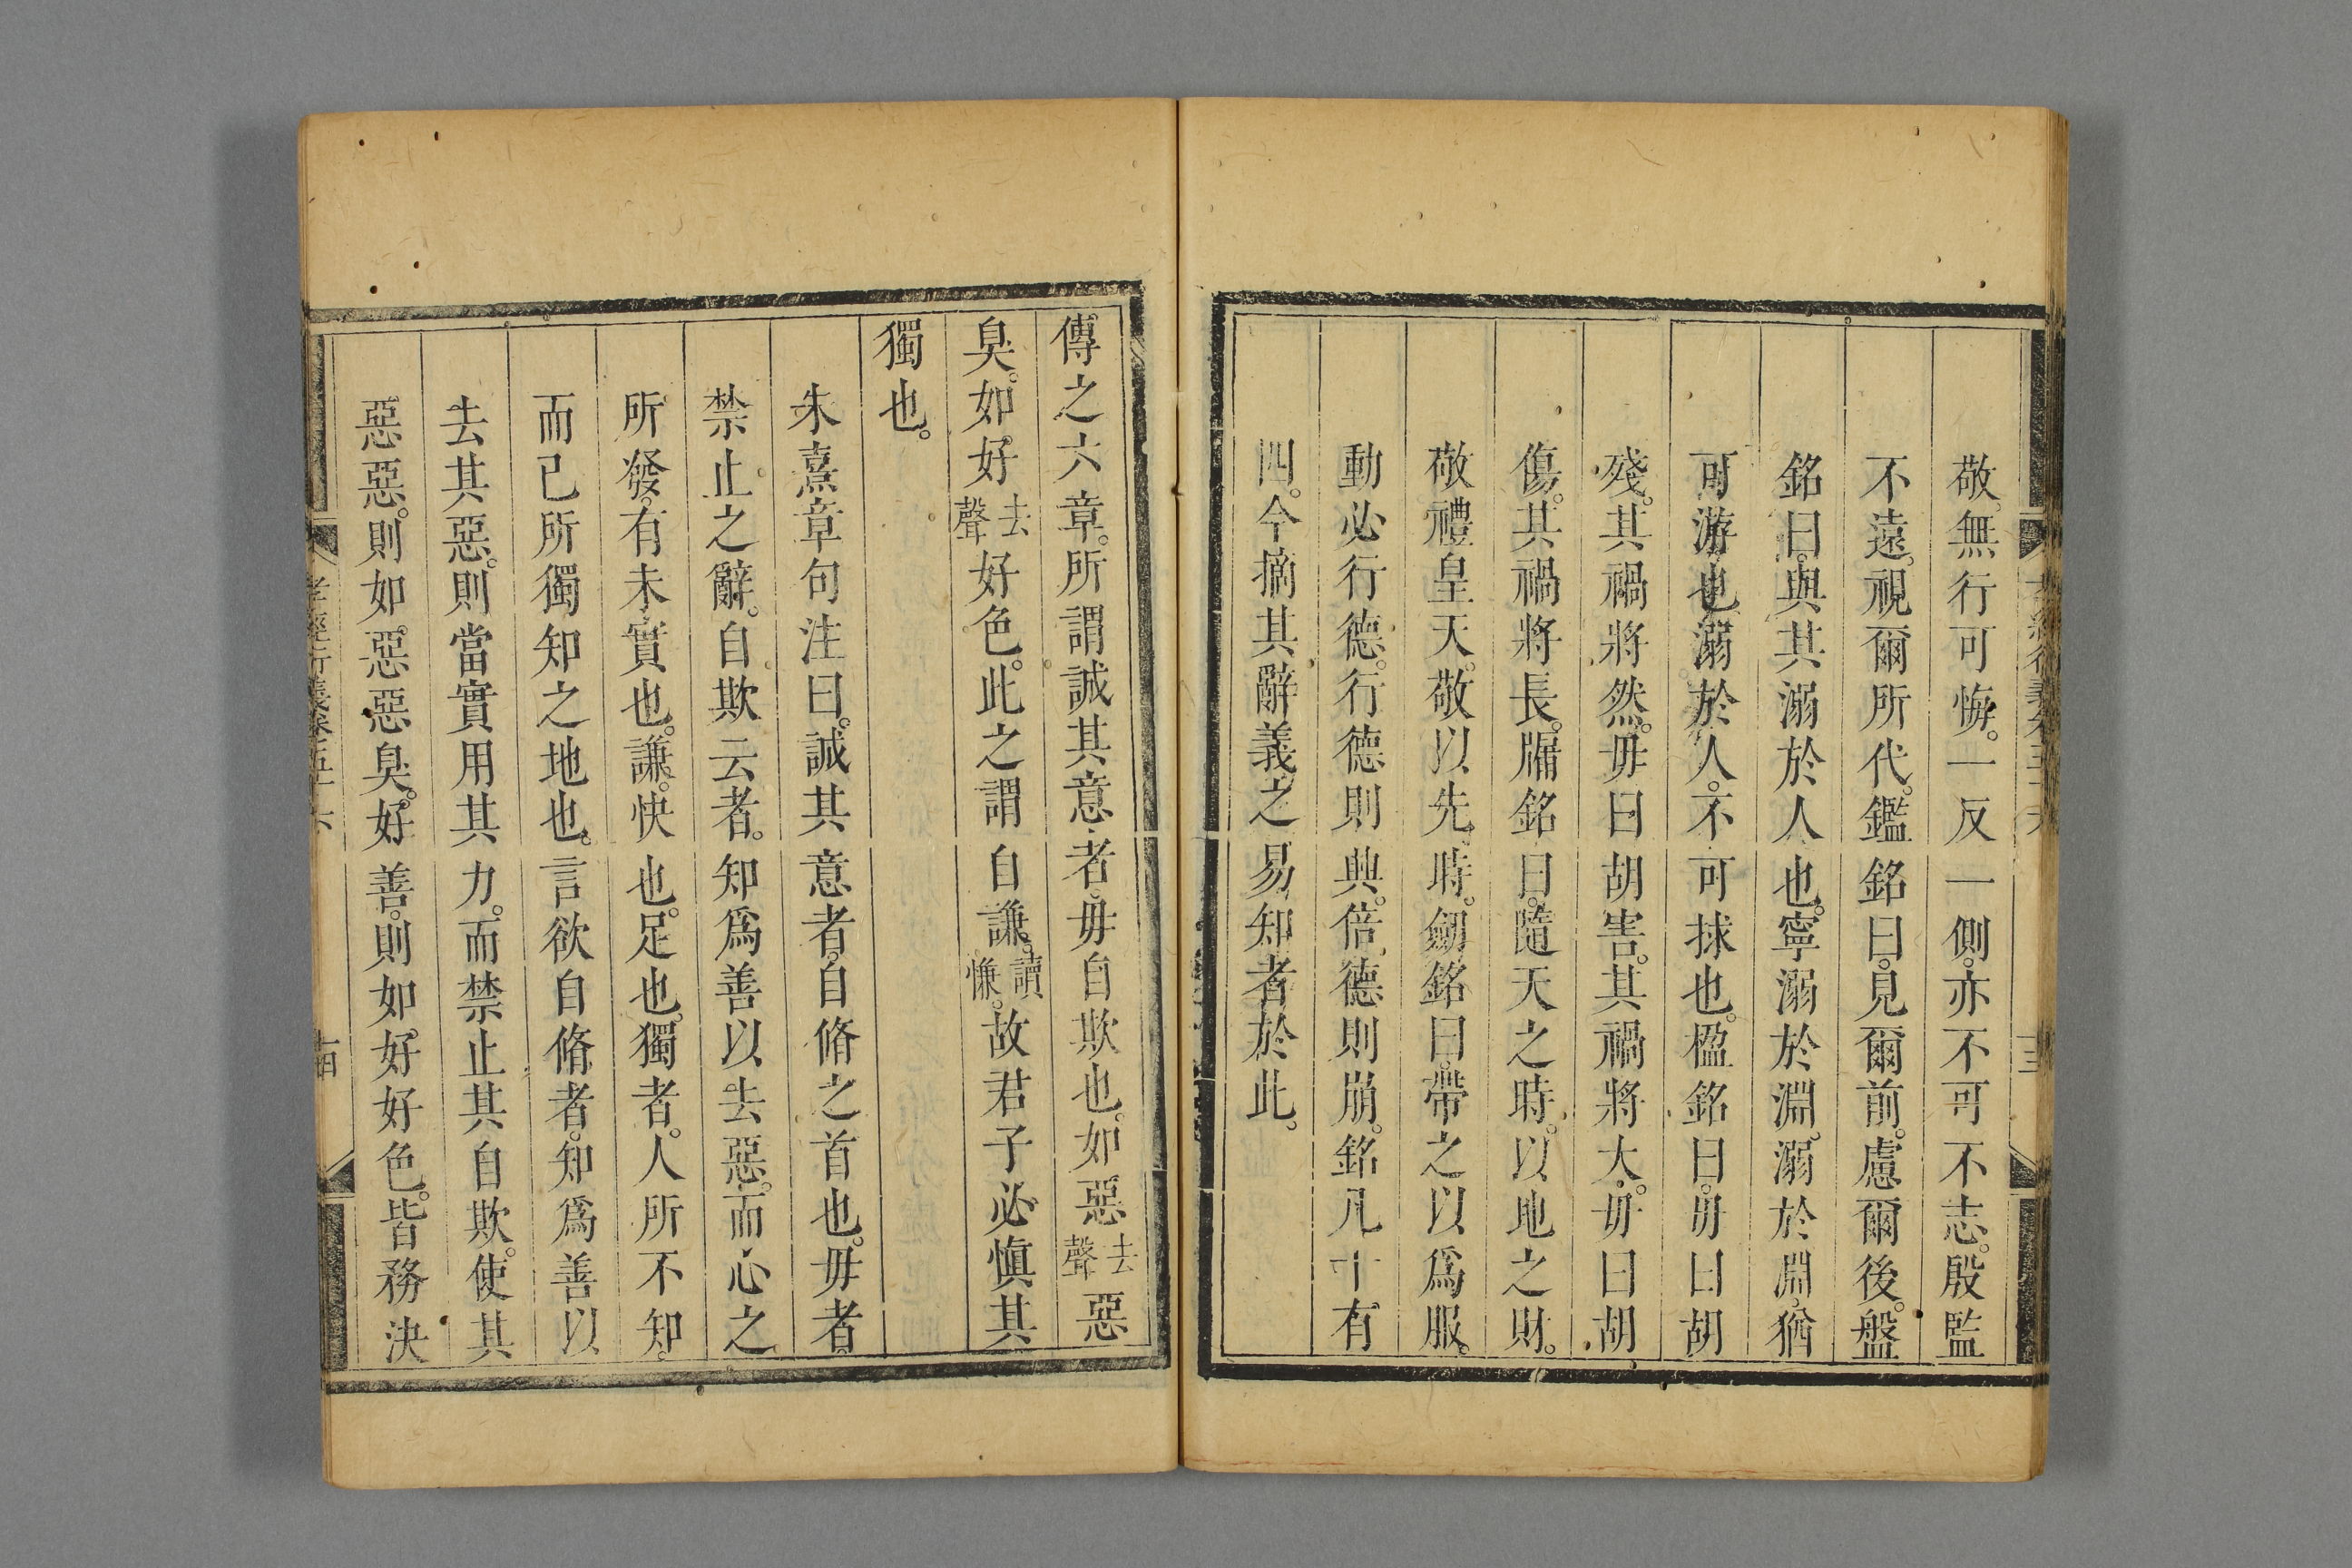 敬。無行可悔。一反一側。亦不可不志。殷監
不遠。視爾所代。鑑銘曰。見爾前。慮爾後。盤
銘曰。與其溺於人也。寧溺於淵。溺於淵。猶
可游也。溺於人。不可捄也。楹銘曰。毋曰胡
殘。其禍將然。毋曰胡害。其禍將大。毋曰胡
傷。其禍將長。牖銘曰。隨天之時。以地之財。
敬禮皇天。敬以先時。劒銘曰。帶之以爲服。
動必行德。行德則興。倍德則崩。銘凡十有
四。今摘其辭義之易知者於此。
傳之六章。所謂誠其意者。毋自欺也。如惡去聲惡
臭。如好去聲好色。此之謂自謙。讀慊。故君子必愼其
獨也。
朱熹章句注曰。誠其意者。自脩之首也。毋者。
禁止之辭。自欺云者。知爲善以去惡。而心之
所發。有未實也。謙。快也。足也。獨者。人所不知。
而己所獨知之地也。言欲自脩者。知爲善以
去其惡。則當實用其力。而禁止其自欺。使其
惡惡。則如惡惡臭。好善。則如好好色。皆務決
孝經衍義卷五十六
十四